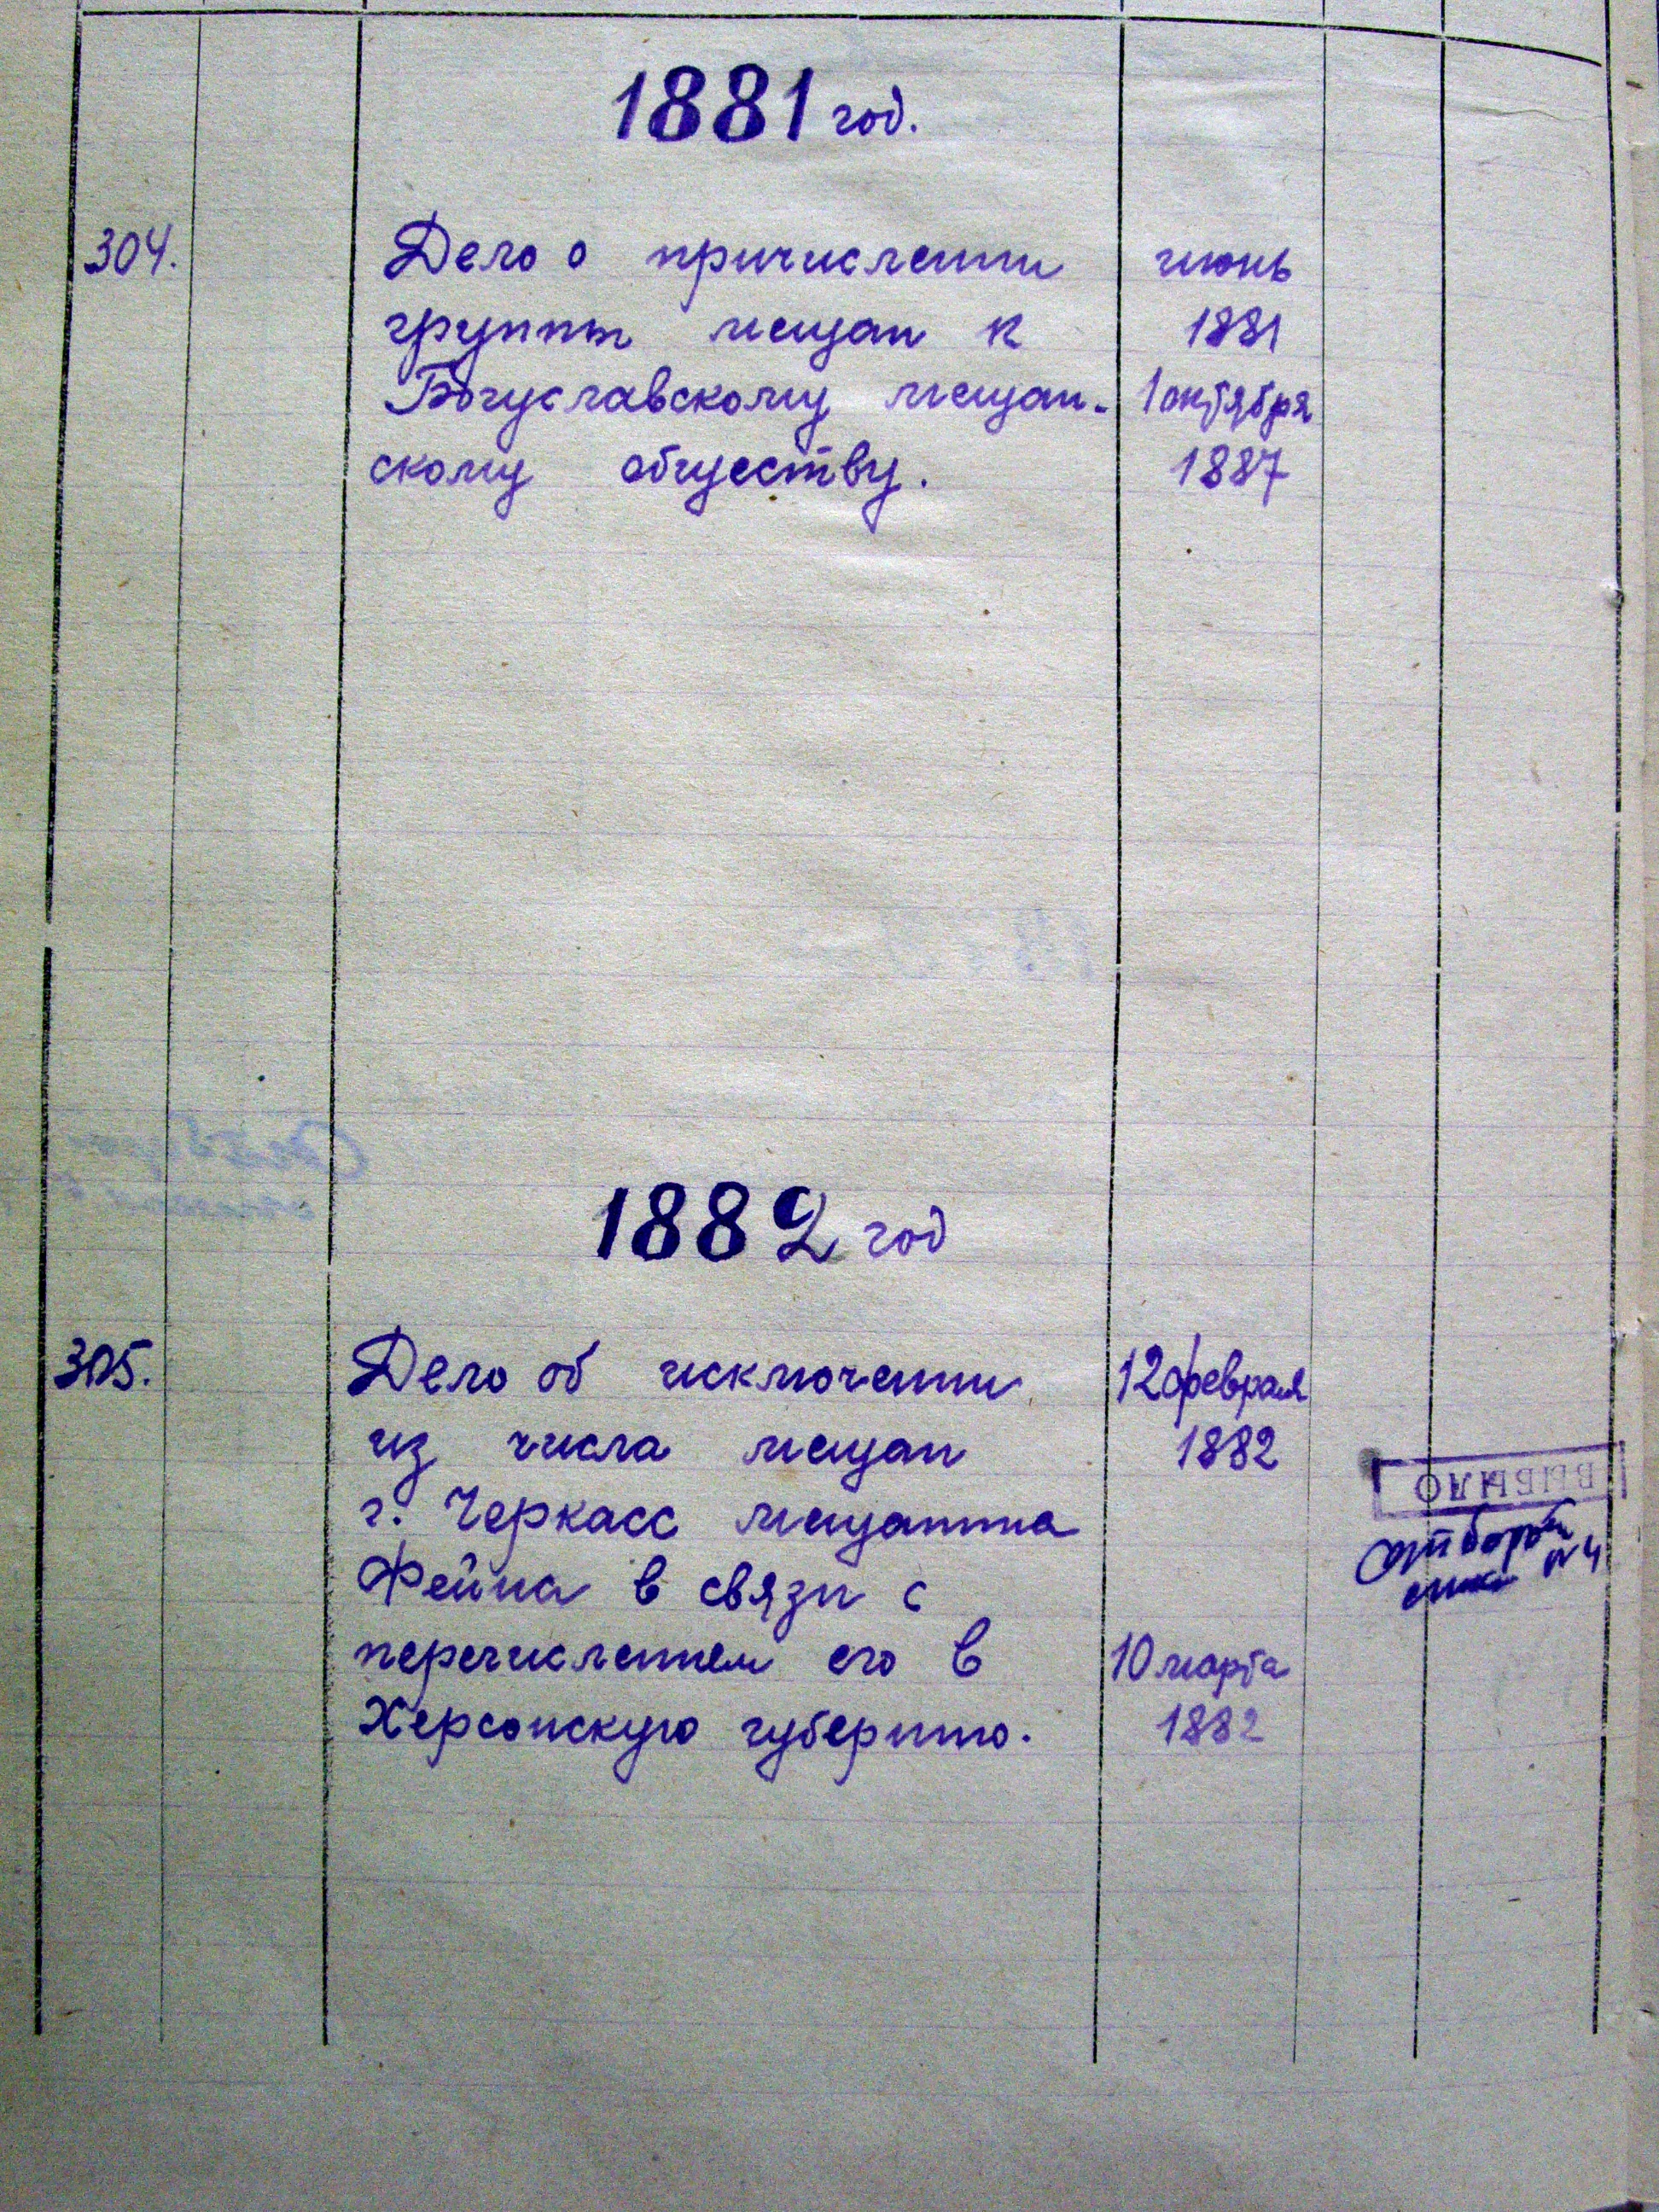 1881 год.
304. Дело о причислении июнь
группы мещан к 1881
Богуславскому мещан- 1 октября
скому обществу. 1887
1882 год
305. Дело об исключении 12 февраля
из числа мещан 1882
г. Черкасс мещанина
Фейна в связи с
перечислением его в 10 марта
Херсонскую губернию. 1882
ВЫБЫЛО
№ 4